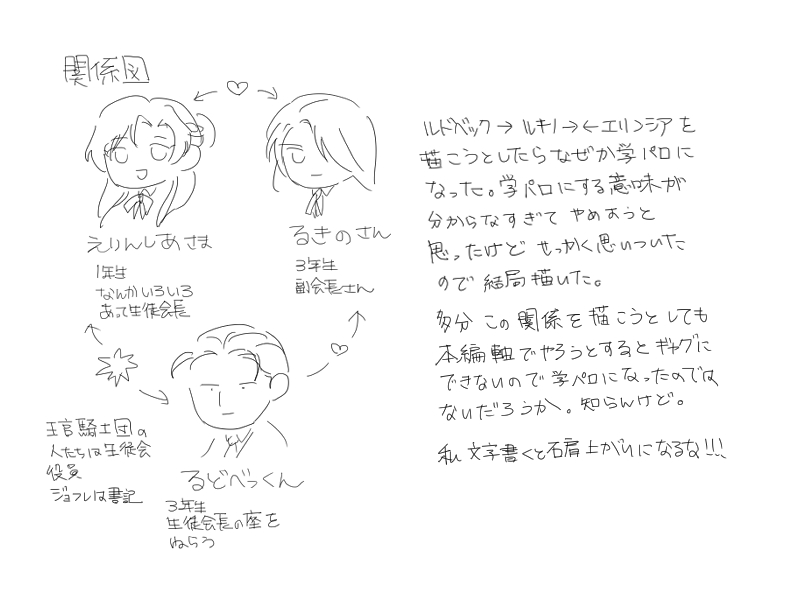 関係図
えりんしあさま
1年生
なんかいろいろ
あって生徒会長
るきのさん
3年生
副会長さん
るどべっくん
3年生
生徒会長の座を
ねらう
王宮騎士団の
人たちは生徒会
役員
ジョフレは書記
ルドベック→ルキノ→←エリンシアを
描こうとしたらなぜか学パロに
なった。学パロにする意味が
分からなすぎてやめようと
思ったけどせっかく思いついた
ので結局描いた。
多分この関係を描こうとしても
本編軸でやろうとするとギャグに
できないので学パロになったのでは
ないだろうか。知らんけど。
私文字書くと右肩上がりになるな!!!